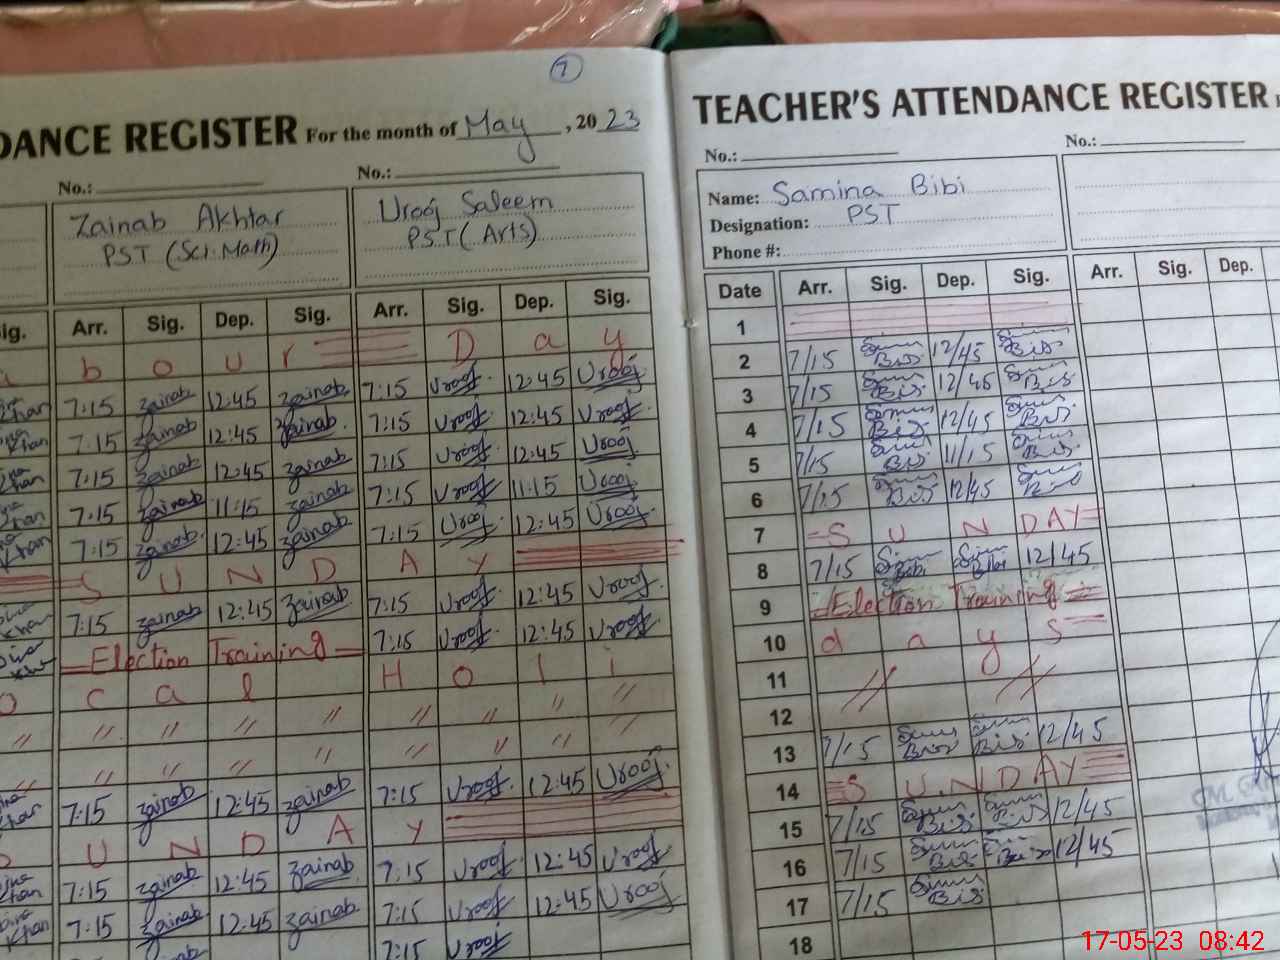 7
DANCE REGISTER For the month of May, 2023
No.: No.:
Zainab Akhtar
PST (Sci.Math)
Urooj Saleem
PST (Arts)
Sig. Arr. Sig. Dep. Sig. Arr. Sig. Dep. Sig.
b o u r D a y
Khan 7:15 Zainab 12:45 Zainab 7:15 Urooj 12:45 Urooj
Khan 7:15 Zainab 12:45 Zainab 7:15 Urooj 12:45 Urooj
Khan 7:15 Zainab 12:45 Zainab 7:15 Urooj 12:45 Urooj
Khan 7:15 Zainab 11:15 Zainab 7:15 Urooj 11:15 Urooj
Khan 7:15 Zainab 12:45 Zainab 7:15 Urooj 12:45 Urooj
S U N D A Y
Khan 7:15 Zainab 12:45 Zainab 7:15 Urooj 12:45 Urooj
Election Training 7:15 Urooj 12:45 Urooj
o c a l H o l i
" " " " " " " " "
" " " " " " " " "
7:15 Zainab 12:45 Zainab 7:15 Urooj 12:45 Urooj
U N D A Y
Khan 7:15 Zainab 12:45 Zainab 7:15 Urooj 12:45 Urooj
Khan 7:15 Zainab 12:45 Zainab 7:15 Urooj 12:45 Urooj
7:15 Urooj
TEACHER'S ATTENDANCE REGISTER
No.: No.:
Name: Samina Bibi
Designation: PST
Phone #:
Date Arr. Sig. Dep. Sig. Arr. Sig. Dep.
1
2 7/15 Bibi 12/45 Bibi
3 7/15 Bibi 12/45 Bibi
4 7/15 Bibi 12/45 Bibi
5 7/15 Bibi 11/15 Bibi
6 7/15 Bibi 12/45 Bibi
7 S U N DAY
8 7/15 Bibi Bibi 12/45
9 Election Training
10 d a y s
11 // //
12
13 7/15 Bibi Bibi 12/45
14 S U N DAY
15 7/15 Bibi Bibi 12/45
16 7/15 Bibi Bibi 12/45
17 7/15 Bibi
18
17-05-23 08:42